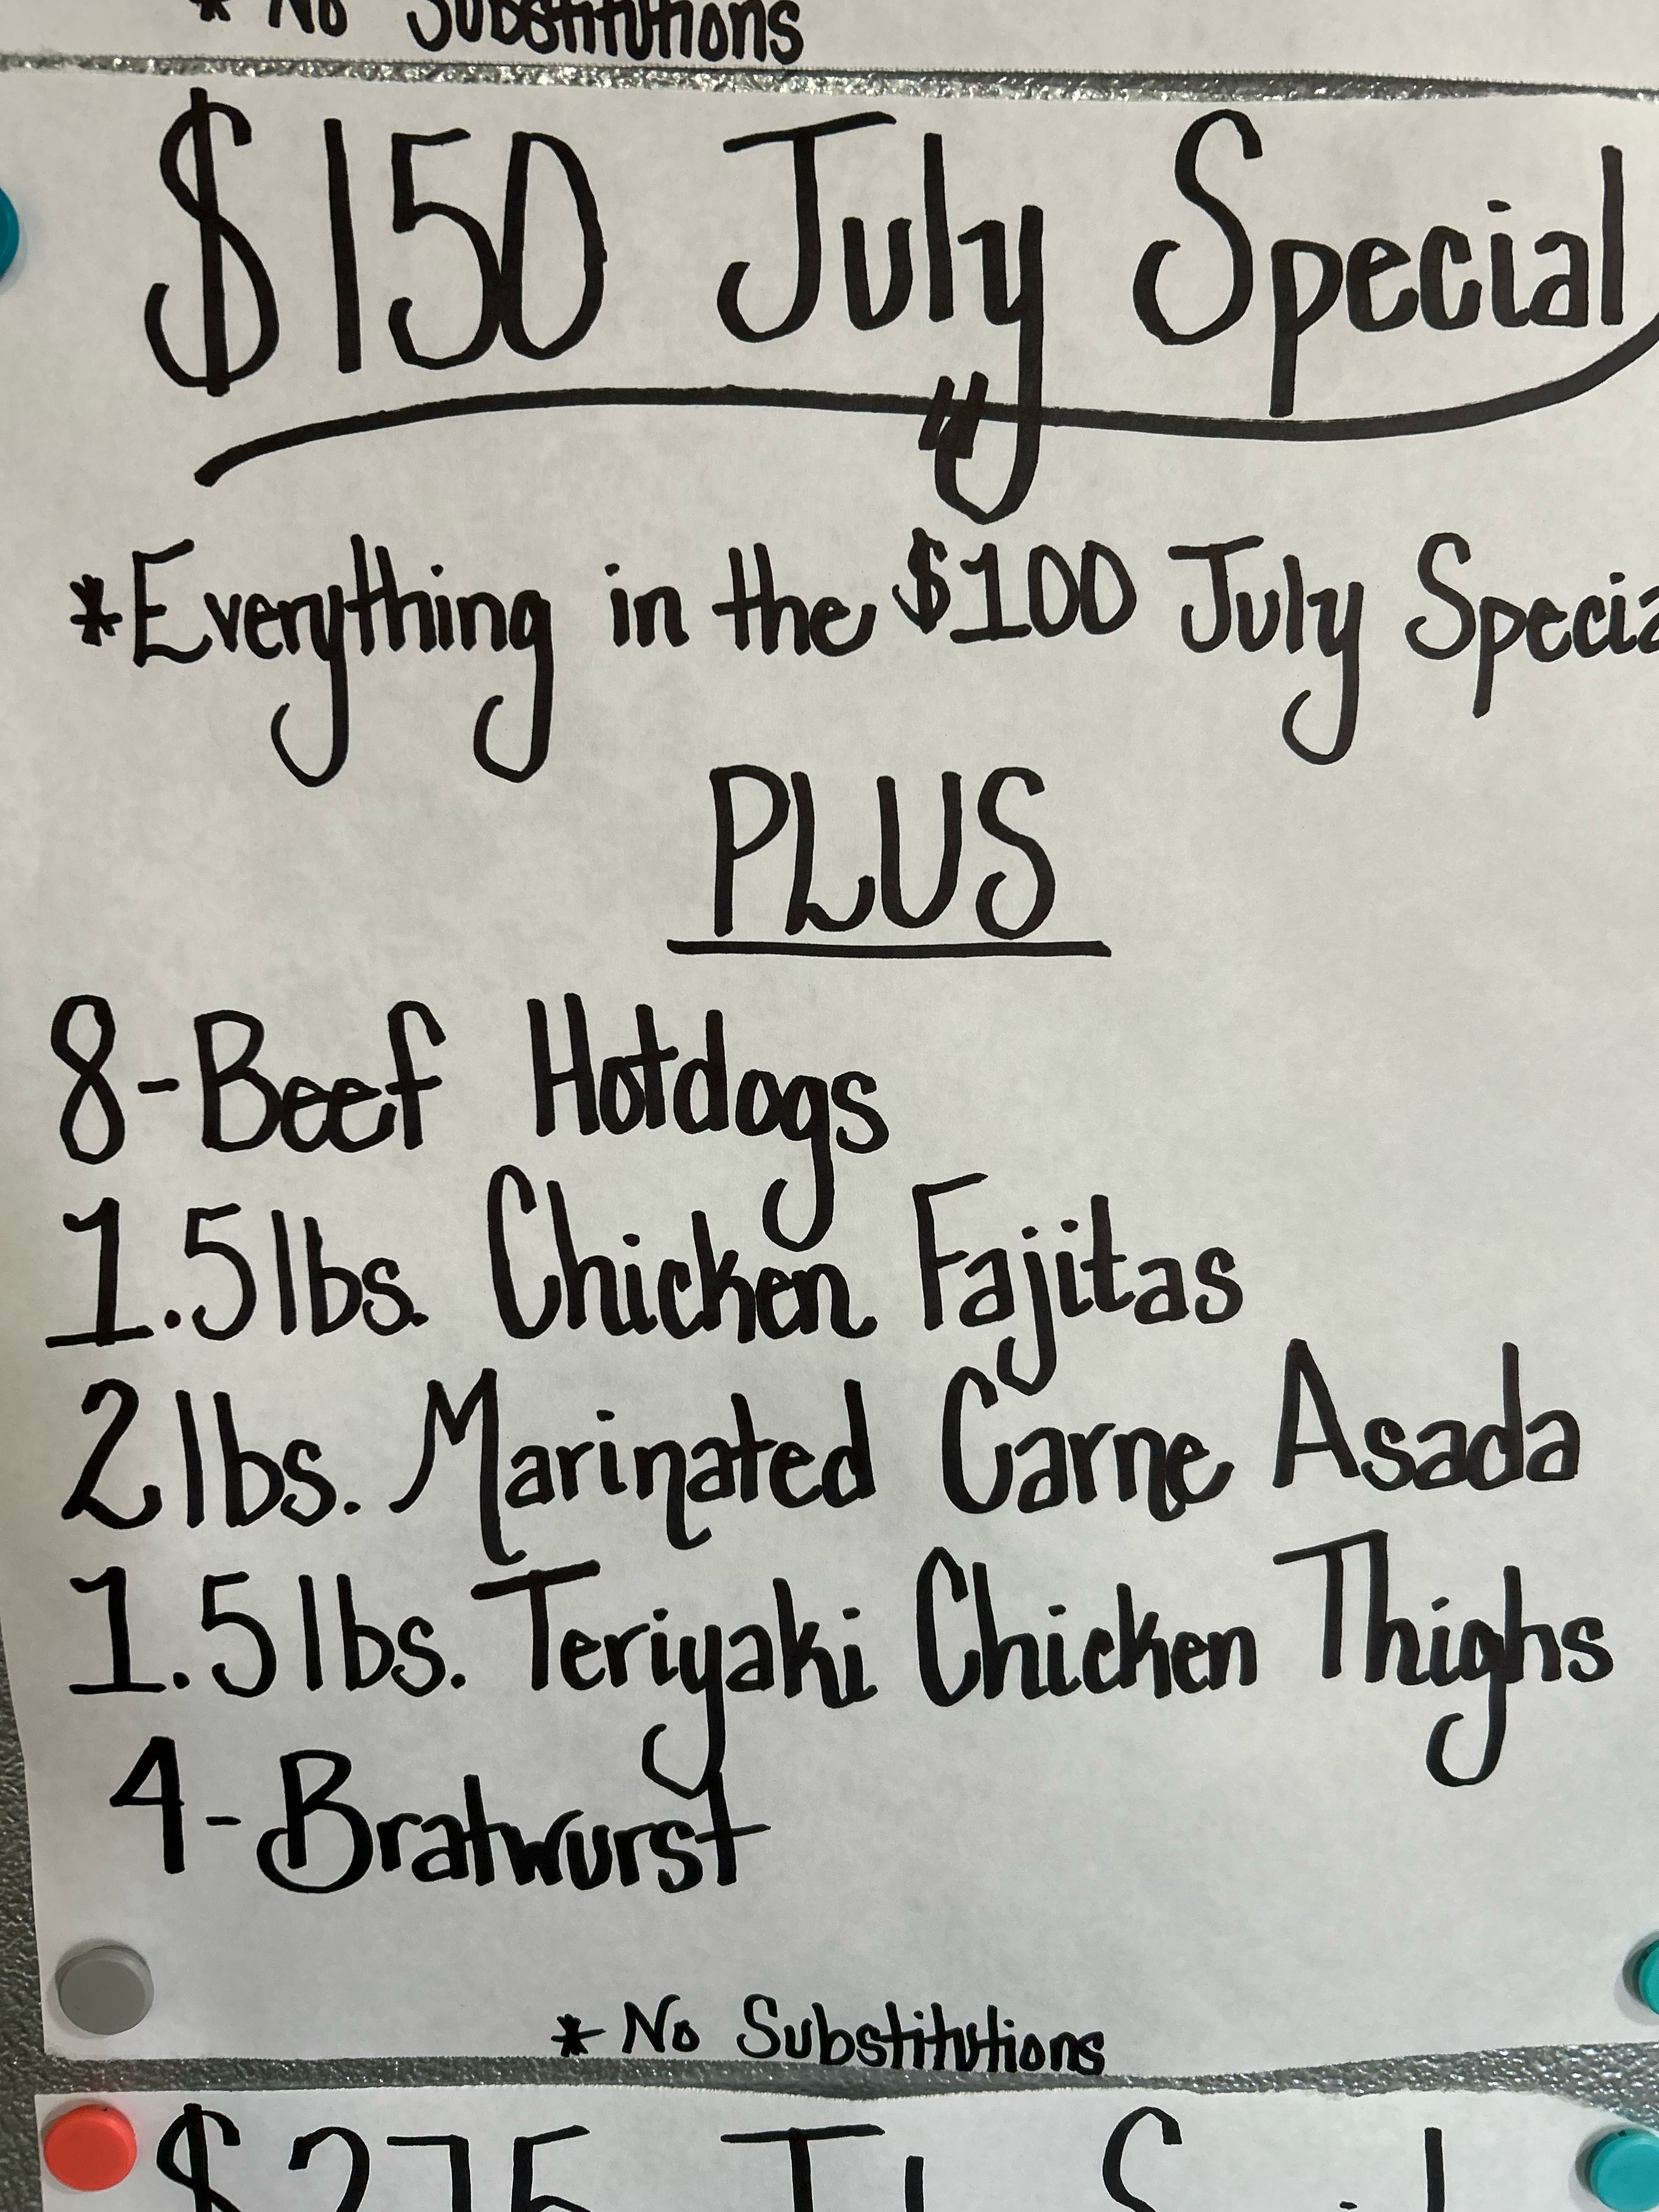 * No Substitutions
$150 July Special
*Everything in the $100 July Specia
PLUS
8-Beef Hotdogs
1.5 lbs. Chicken Fajitas
2 lbs. Marinated Carne Asada
1.5 lbs. Teriyaki Chicken Thighs
4-Bratwurst
* No Substitutions
$275 July Special